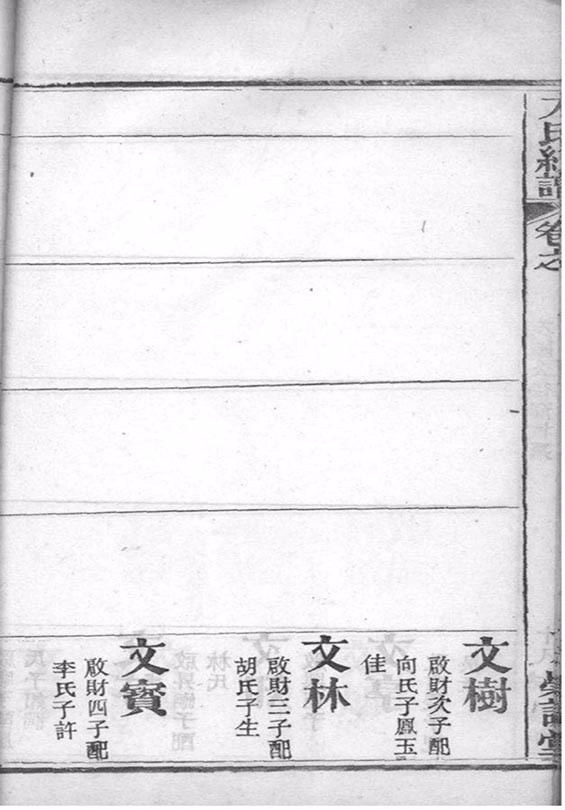 氏經譜
卷之
文樹
啟財次子配
向氏子鳳玉
佳
文林
啟財三子配
胡氏子生
文寶
啟財四子配
李氏子許